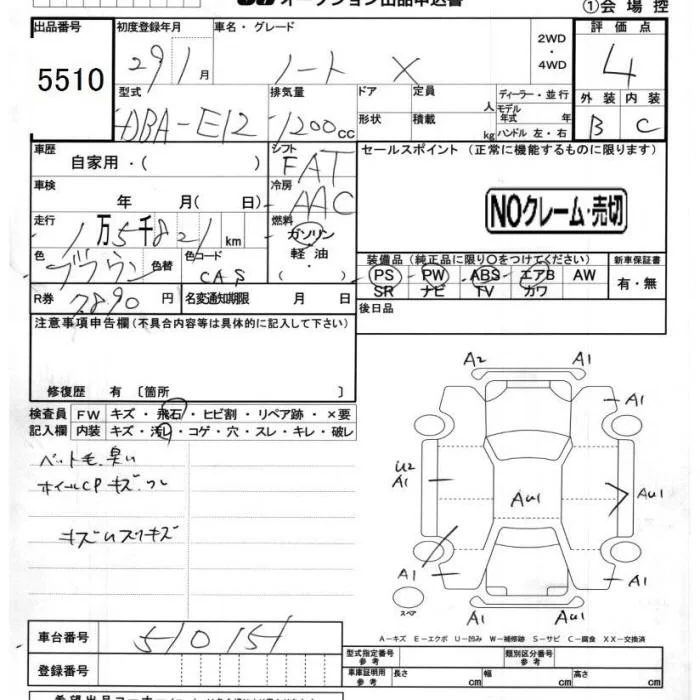 オークション出品申込書
①会場控
出品番号 初度登録年月 車名・グレード 評価点
5510 29 1 月 ノート X 2WD・4WD 4
型式 排気量 ドア 定員 人 ディーラー・並行 外装 内装
DBA-E12 1200 cc 形状 積載 kg モデル年式 年 ハンドル 左・右 B C
車歴 シフト セールスポイント (正常に機能するものに限ります)
自家用・( ) FAT
車検 冷房 NOクレーム・売切
年 月( 日) AAC
走行 燃料
1万5千821km ガソリン・軽油・
色 色替 色コード 装備品(純正品に限り〇をつけてください) 新車保証書
ブラウン CAS PS PW ABS エアB AW 有・無
SR ナビ TV カワ
R券 7890円 名変通知期限 月 日 後日品
注意事項申告欄(不具合内容等は具体的に記入して下さい)
修復歴 有 〔箇所 〕
検査員 FW キズ・飛石・ヒビ割・リペア跡・×要
記入欄 内装 キズ・汚レ・コゲ・穴・スレ・キレ・破レ
ペット毛.臭い
ホイールCP キズ.
キズUスリキズ
A2 A1
A1
U2
A1
AU1 AU1
A1
スペア
A1 AU1
A-キズ E-エクボ U-凹み W-補修跡 S-サビ C-腐食 XX-交換済
車台番号 510151
型式指定番号 参考 類別区分番号 参考
登録番号
車庫証明用 参考 長さ cm 幅 cm 高さ cm
希望出品コーナー